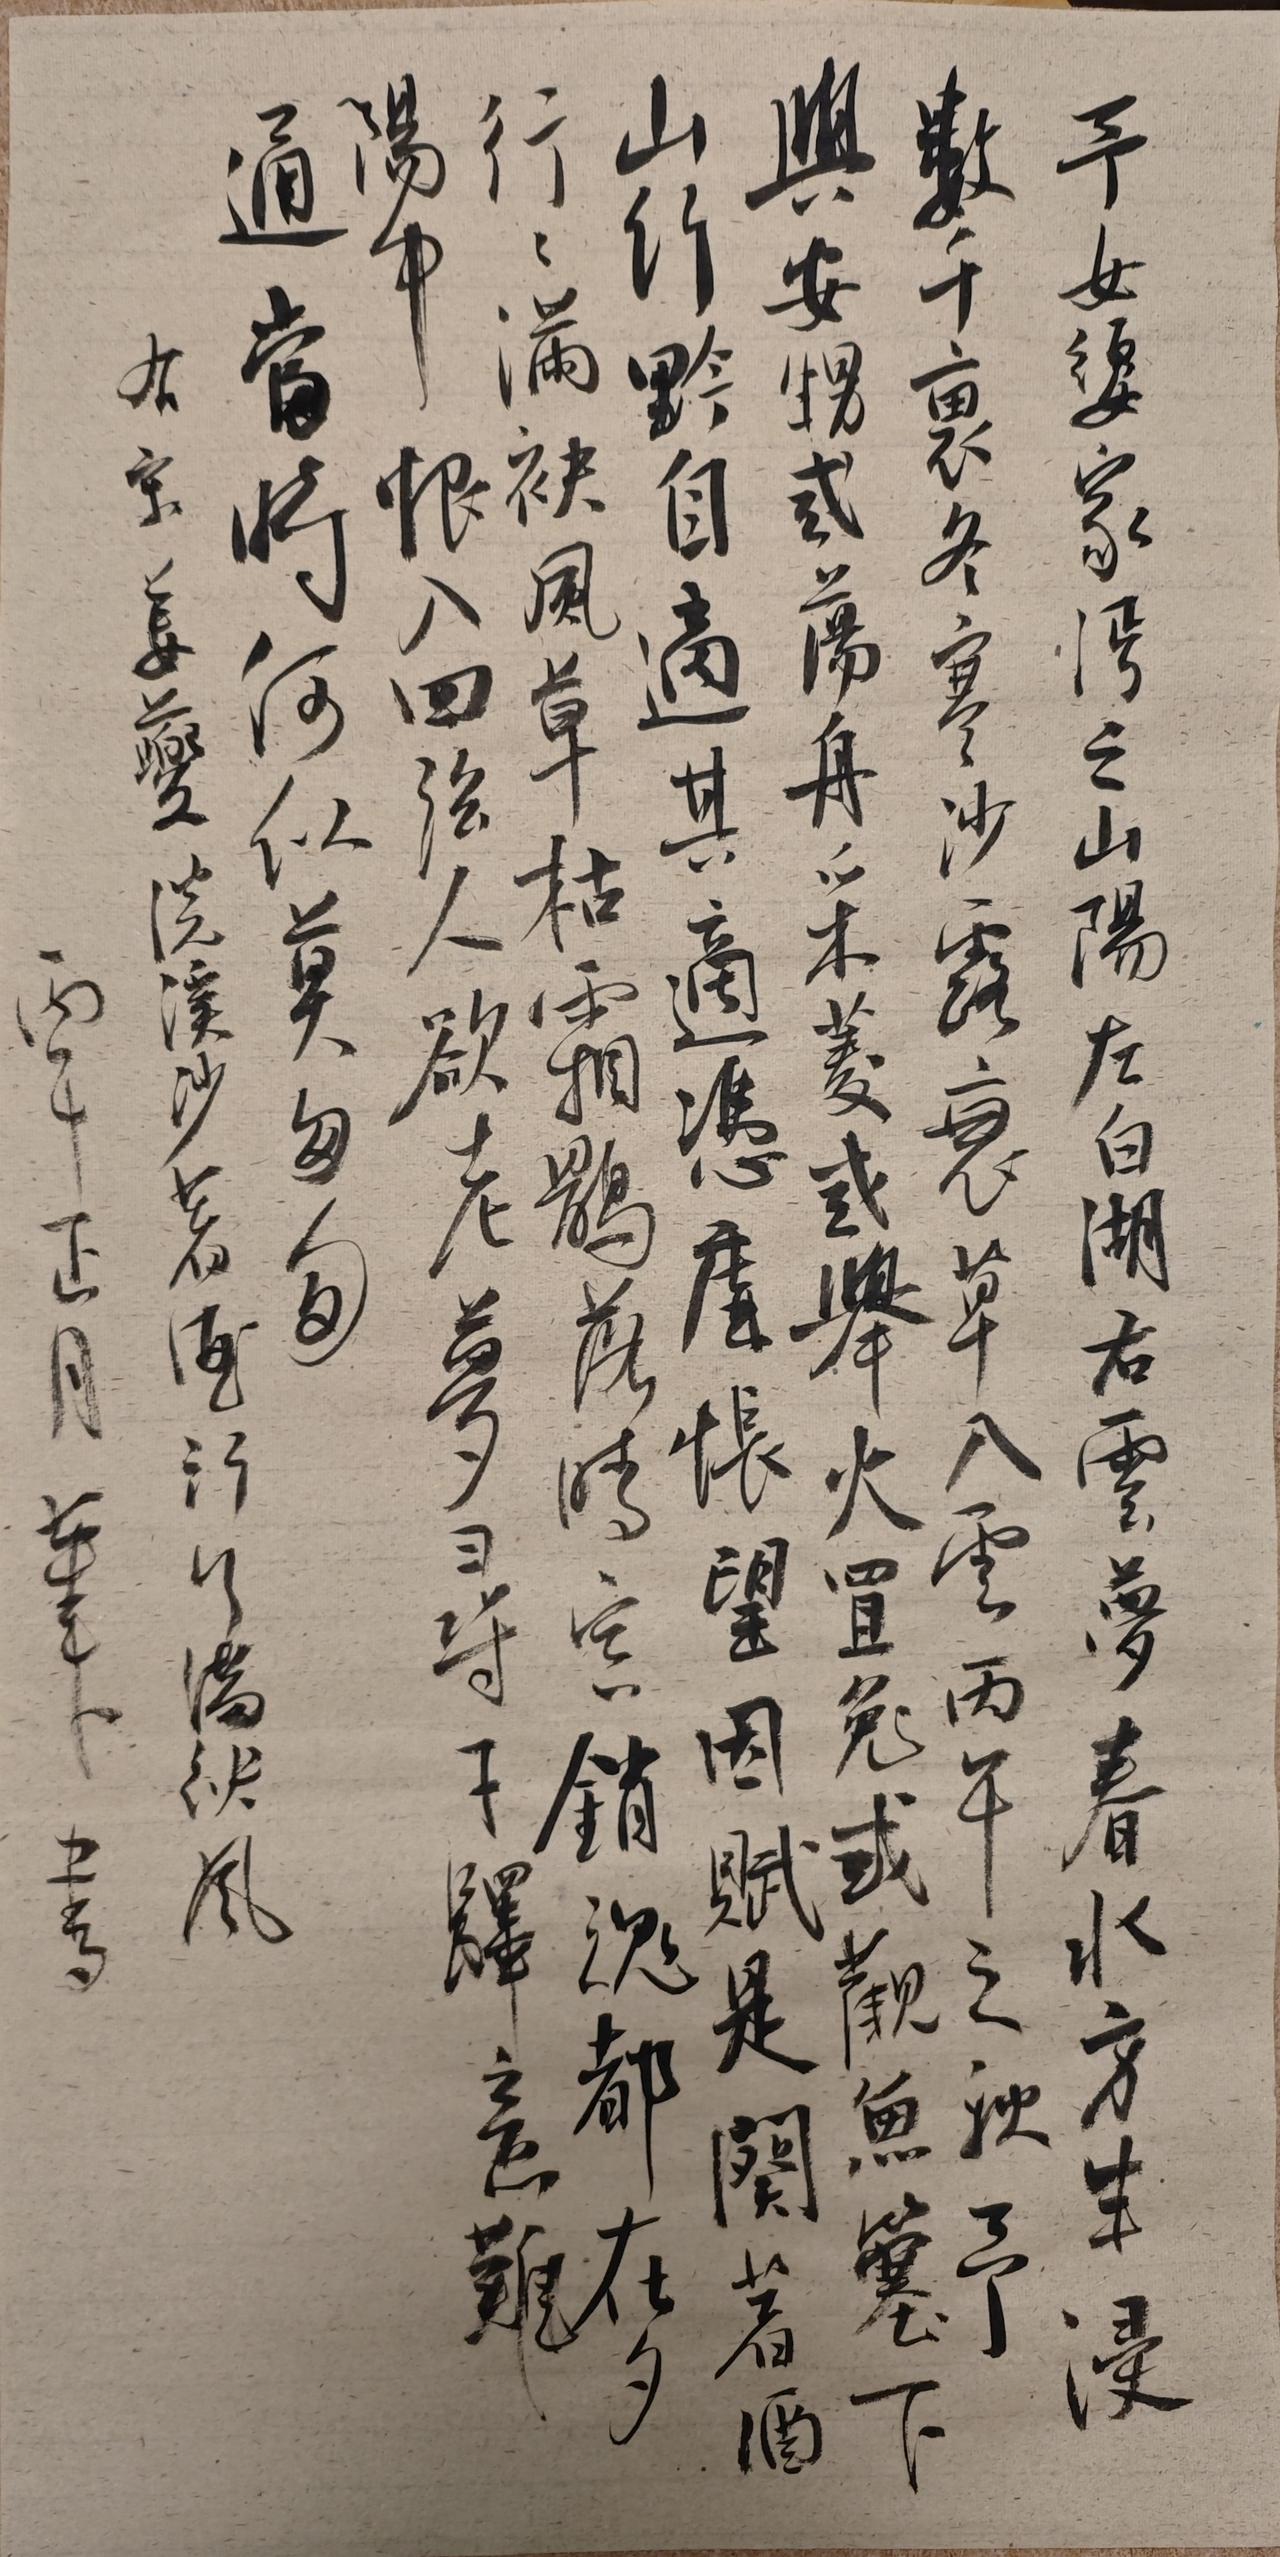 予女嬃家沔之山陽左白湖右雲夢春水方生浸
數千裏冬寒沙露衰草入雲丙午之秋予
與安甥或蕩舟采菱或舉火罝兔或觀魚簺下
山行黔自適其適憑虛悵望因賦是闋著酒
行〻滿袂風草枯霜鶻落晴空銷魂都在夕
陽中恨入四弦人欲老夢尋千驛意難
通當時何似莫匆匆
右宋姜夔浣溪沙著酒行行滿袂風
丙午正月 書